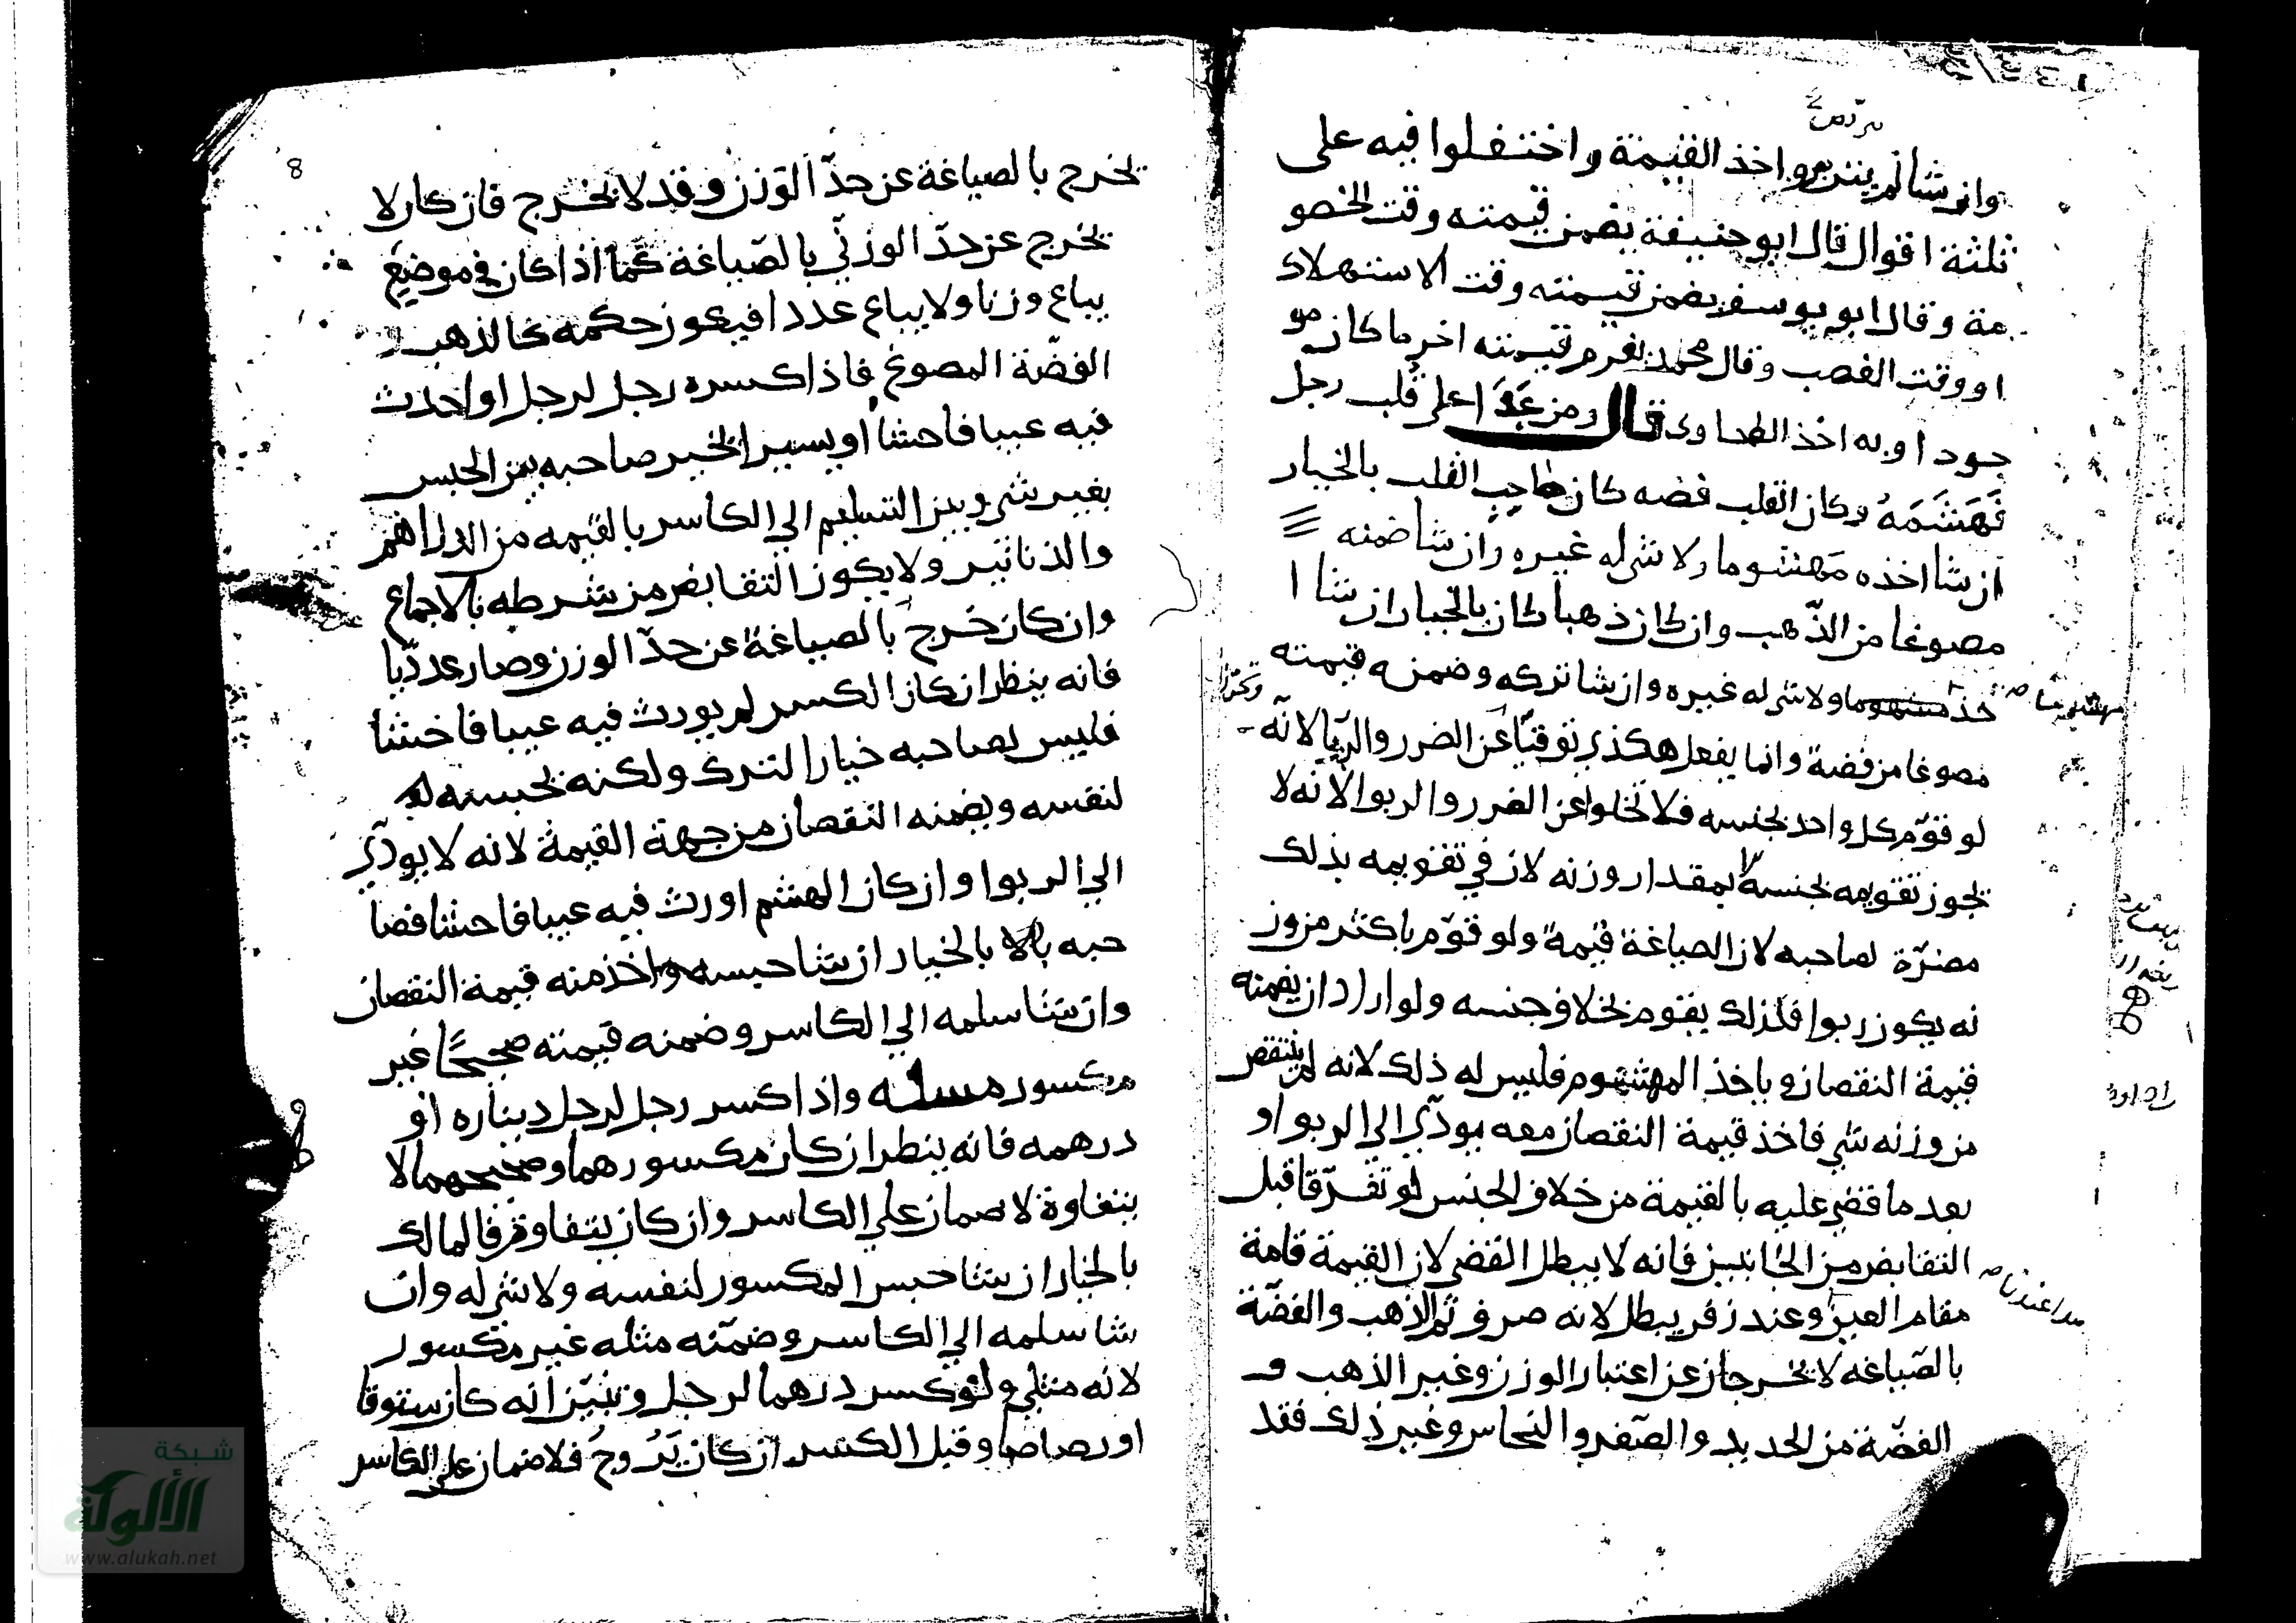 وان شا لم يتربص واخذ القيمة واختفلوا فيه على
ثلثة اقوال قال ابو حنيفة يضمن قيمته وقت الخصو
مة وقال ابو يوسف يضمن قيمته وقت الاستهلاك
او وقت الغصب وقال محمد يغرم قيمته اخر ما كان مو
جودا وبه اخذ الطحاوى قال ومن عدا على قلب رجل
فَهَشَمَهُ وكان القلب فضه كان صاحب القلب بالخيار
ان شا اخذه مَهشوما ولا شى له غيره وان شا ضمنه
مصوغا من الذّهب وان كان ذهبا كان بالخيار ان شا ا
خذ ولا شى له غيره وان شا تركه وضمنه قيمته
مهشوما صح
مصوغا من فضة وانما يفعل هكذى توقيّا عن الضرر والربا لانّه
لو قوّم كل واحد بجنسه فلا تخلوا عن الضرر والربوا لانه لا
يجوز تقويمه بجنسه لا بمقدار وزنه لان في تقويمه بذلك
مضرّة لصاحبه لان الصياغة قيمة ولو قوّم باكثر من وز
نه يكون ربوا فلذلك يقوم بخلاف جنسه ولو اراد ان يضمنه
قيمة النقصان وياخذ المهشوم فليس له ذلك لانه لم ينتقص
من وزنه شي فاخذ قيمة النقصان معه يودّي الي الربوا و
بعد ما قضي عليه بالقيمة من خلاف الجنس لو تفرّقا قبل
التقابض من الجانبين فانه لا يبطل القضي لان القيمة قامة
مقام العين وعند زفر يبطل لانه صرف ثم الذهب والفضّة
بالصّياغه لا يخرجان عن اعتبار الوزن وغير الذهب و
الفضّة من الحديد والصّفر والنحاس وغير ذلك فقد
8
يخرج بالصياغة عن حدّ الوزن وقد لا يخرج فان كان لا
يخرج عن حدّ الوزنّي بالصّياغة كما اذا كان في موضع
يباع وزنا ولا يباع عددا فيكون حكمه كالذهب و
الفضّة المصوغ فاذا كسره رجل لرجل او احدث
فيه عيبا فاحشا او يسيرا يخير صاحبه بين الحبس
بغير شي وبين التسليم الي الكاسر بالقيمه من الدراهم
والدنانير ولا يكون التقابض من شرطه بالاجماع
وان كان خَرج بالصياغة عن حدّ الوزن وصار عدديّا
فانه ينظر ان كان الكسر لم يورث فيه عيبا فاحشا
فليس لصاحبه خيار الترك ولكنه يحبسه
لنفسه ويضمنه النقصان من جهة القيمة لانه لا يودّي
الي الربوا وان كان الهشم اورث فيه عيبا فاحشا فصا
حبه بالخيار ان شا حبسه واخذ منه قيمة النقصان
وان شا سلمه الي الكاسر وضمنه قيمته صحيحًا غير
مكسور مسله واذا كسر رجل لرجل ديناره او
درهمه فانه ينظر ان كان مكسورهما وصحيحهما لا
يتفاوة لا ضمان علي الكاسر وان كان يتفاوة فالمالك
بالخيار ان شا حبس المكسور لنفسه ولا شي له وان
شا سلمه الي الكاسر وضمّنه مثله غير مكسور
لانه مثلي ولو كسر درهما لرجل وتبيّن انه كان ستوقا
او رصاصا وقبل الكسر ان كان يَرُوجُ فلا ضمان على الكاسر
شبكة
الألوكة
www.alukah.net